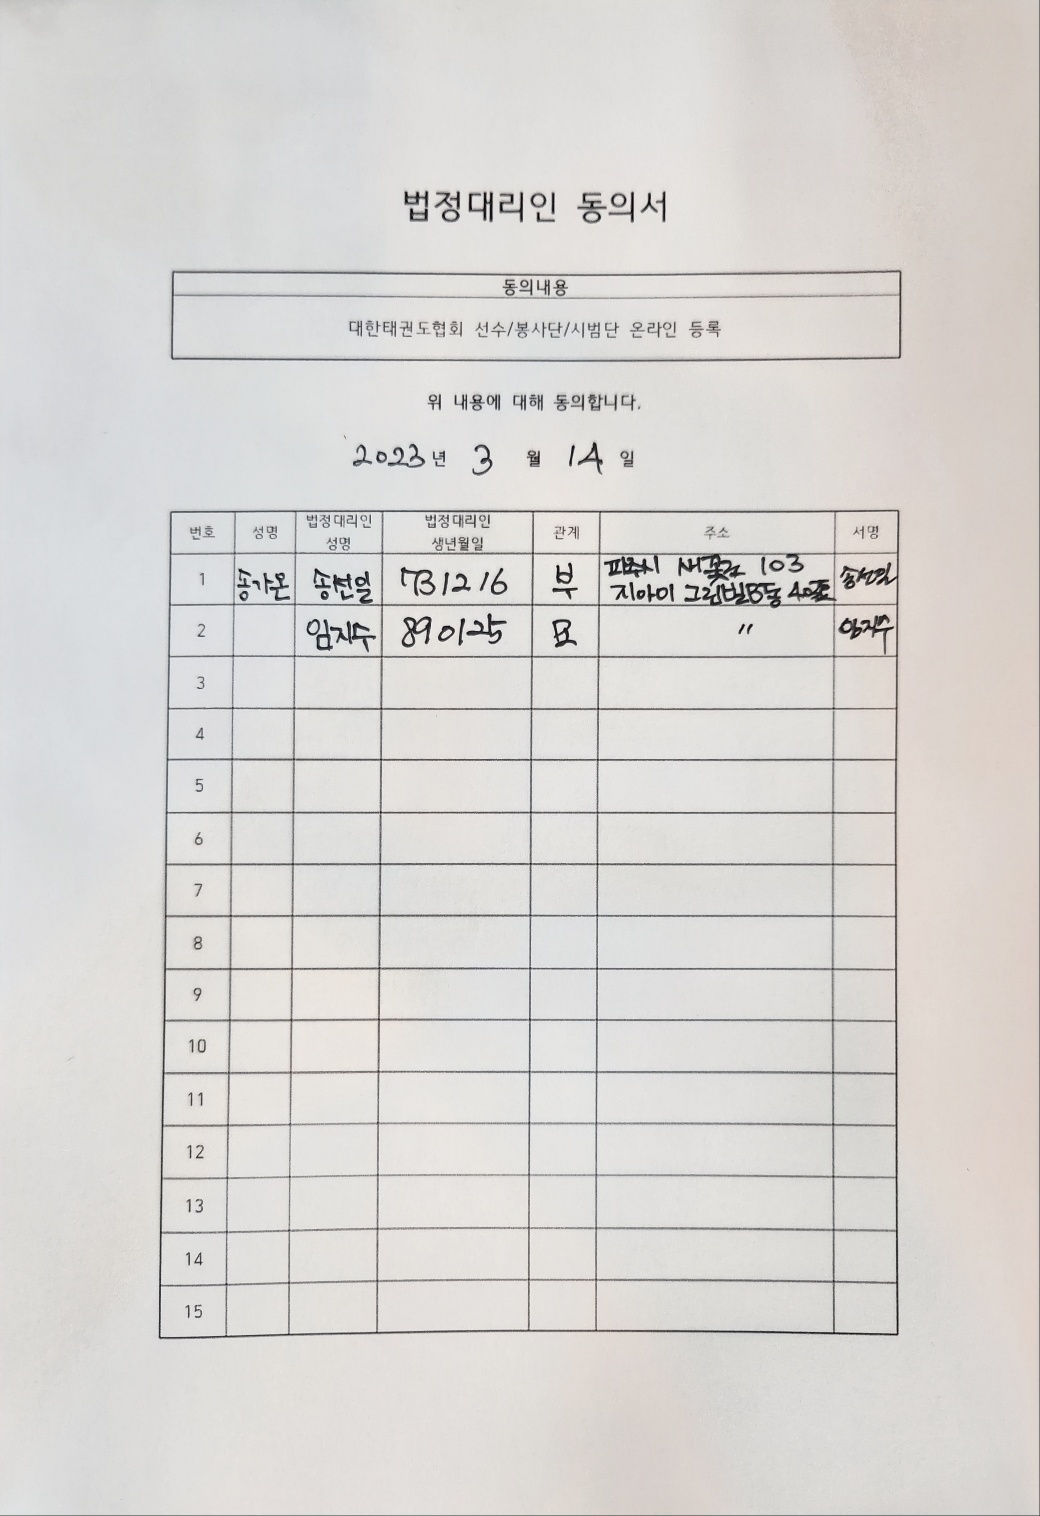 법정대리인 동의서
동의내용
대한태권도협회 선수/봉사단/시범단 온라인 등록
위 내용에 대해 동의합니다.
2023년 3 월 14 일
번호 성명 법정대리인 성명 법정대리인 생년월일 관계 주소 서명
1 송가온 송선일 731216 부 파주시 새꽃로 103
지아이 그린빌B동 송선일
2 임지수 890125 모 〃 임지수
3
4
5
6
7
8
9
10
11
12
13
14
15